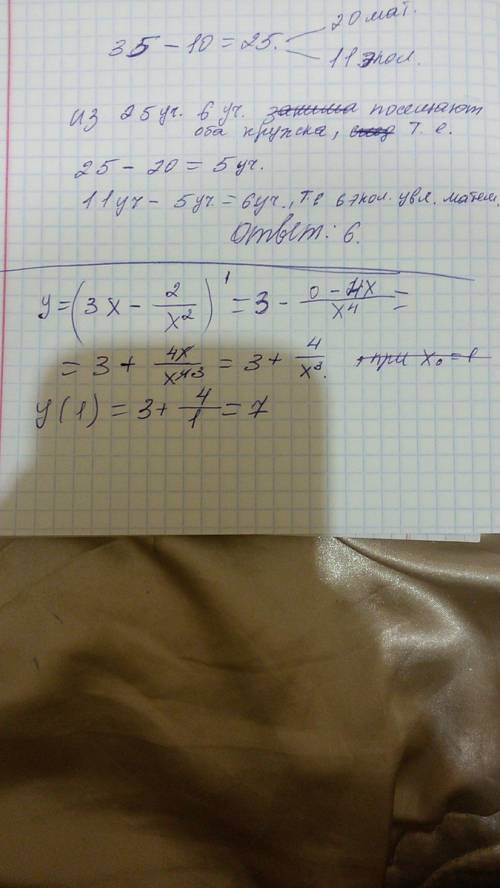 35 - 10 = 25.
20 мат.
11 экол.
из 25 уч. 6 уч. посещают
оба кружка, т. е.
25 - 20 = 5 уч.
11 уч - 5 уч. = 6 уч., т.е 6 экол. увл. матем.
Ответ: 6.
y = (3x - 2/x²)' = 3 - (0 - 4x)/x⁴ =
= 3 + 4x/x⁴³ = 3 + 4/x³. при x₀ = 1
y(1) = 3 + 4/1 = 7